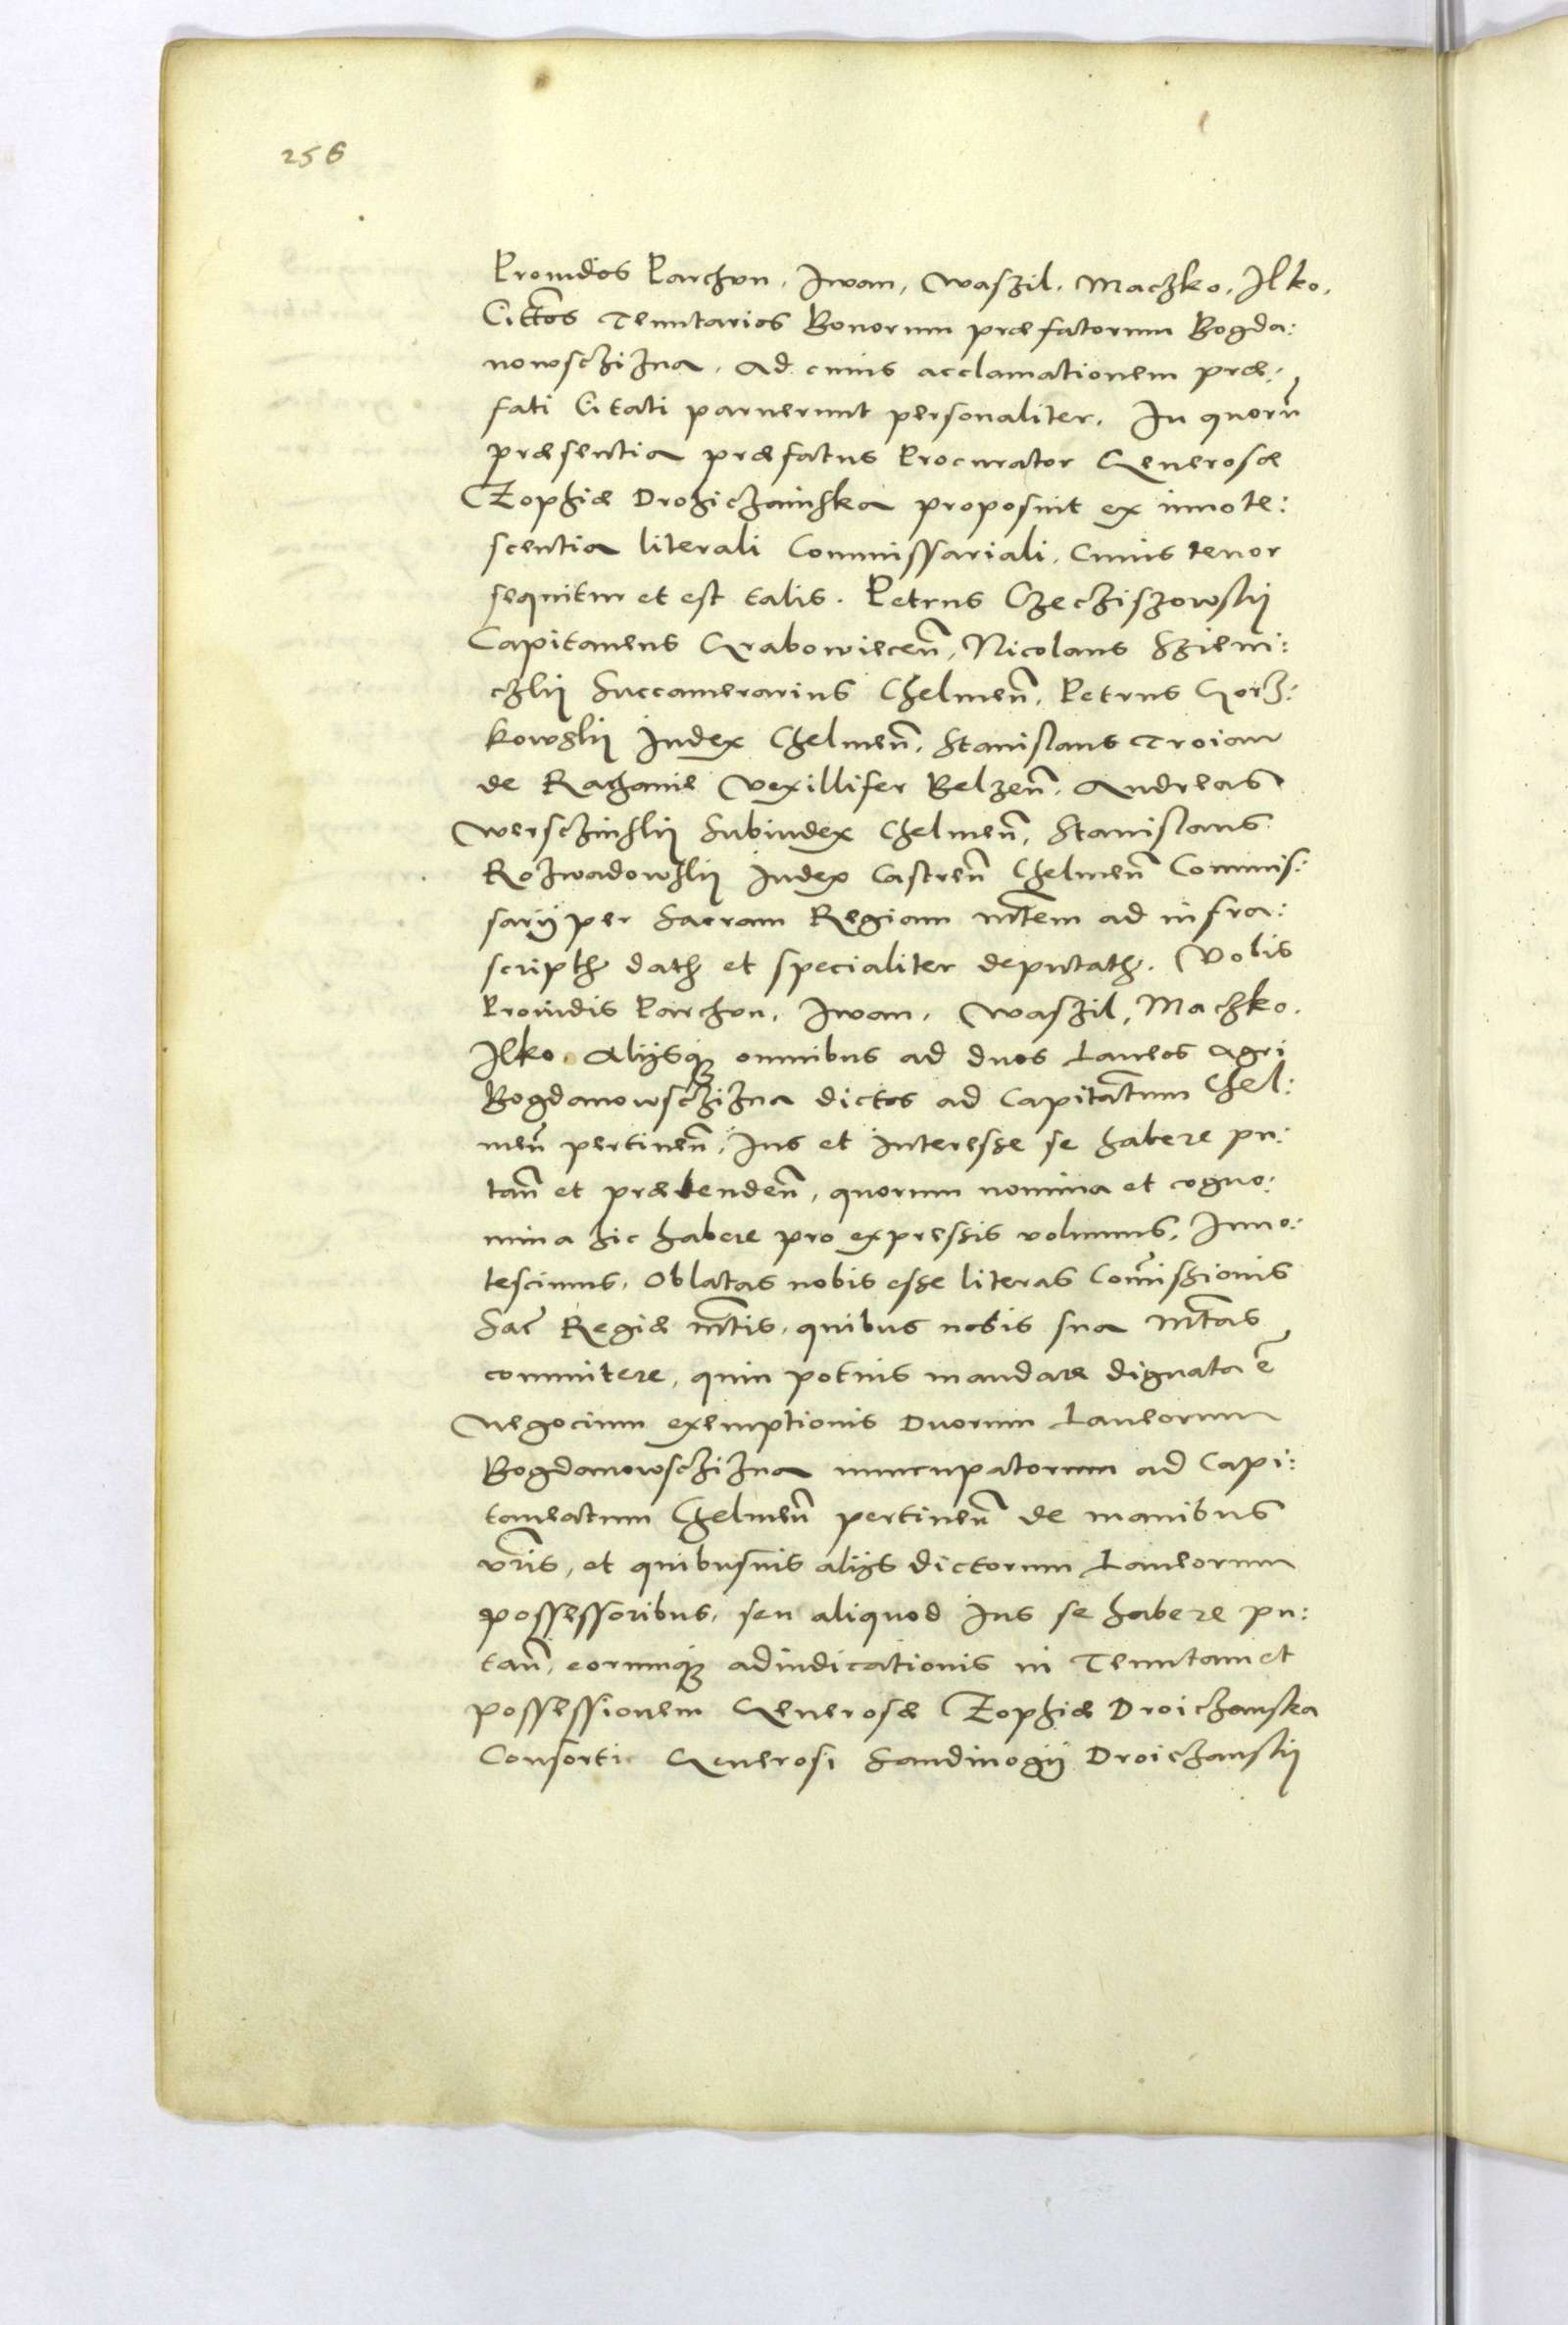 256
Prouidos Parchon, Iwan, Waszil, Maczko, Ilko,
Cittos Tenutarios Bonorum præfatorum Bogda:
nowsczizna. Ad cuius acclamationem præ:
fati Citati paruerunt personaliter. In quorũ
præsentia præfatus Procurator Generosæ
Zophiæ Drohiczainska proposuit ex innote:
scentia literali Commissariali, Cuius tenor
sequitur et est talis. Petrus Czecziszowskij
Capitaneus Grabowiecen̄, Nicolaus Szieni:
czkij Succamerarius Chelmen̄, Petrus Gorz:
kowskij Iudex Chelmen̄, Stanislaus Troian
de Rachanie Vexillifer Belzen̄, Andreas
Wersczinskij Subiudex Chelmen̄, Stanislaus
Rozwadowskij Iudex Castren̄ Chelmen̄ Commis:
sarij per Sacram Regiam Mtem ad infra:
scripth dath et specialiter deputath. Vobis
Prouidis Parchon, Iwan, Waszil, Maczko,
Ilko, Alijsq; omnibus ad duos Laneos Agri
Bogdanowsczizna dictos ad Capitatum Chel:
men̄ pertinen̄, Ius et interesse se habere pu:
tan̄ et prætenden̄, quorum nomina et cogno:
mina hic habere pro expressis volumus, Inno:
tescimus, Oblatas nobis esse literas Com̃issionis
Sac̃ Regiæ Mtis, quibus nobis sua Mtas
committere, quin potius mandare dignata ẽ
Negocium exemptionis Duorum Laneorum
Bogdanowsczizna nuncupatorum ad Capi:
taneatum Chelmen̄ pertinen̄ de manibus
vr̃is, et quibusuis alijs dictorum Laneorum
possessoribus, seu aliquod Ius se habere pu:
tan̄, eorumq; adiudicationis in Tenutam et
possessionem Generosæ Zophiæ Droiczanska
Consortis Generosi Sandiuogij Droiczanskij